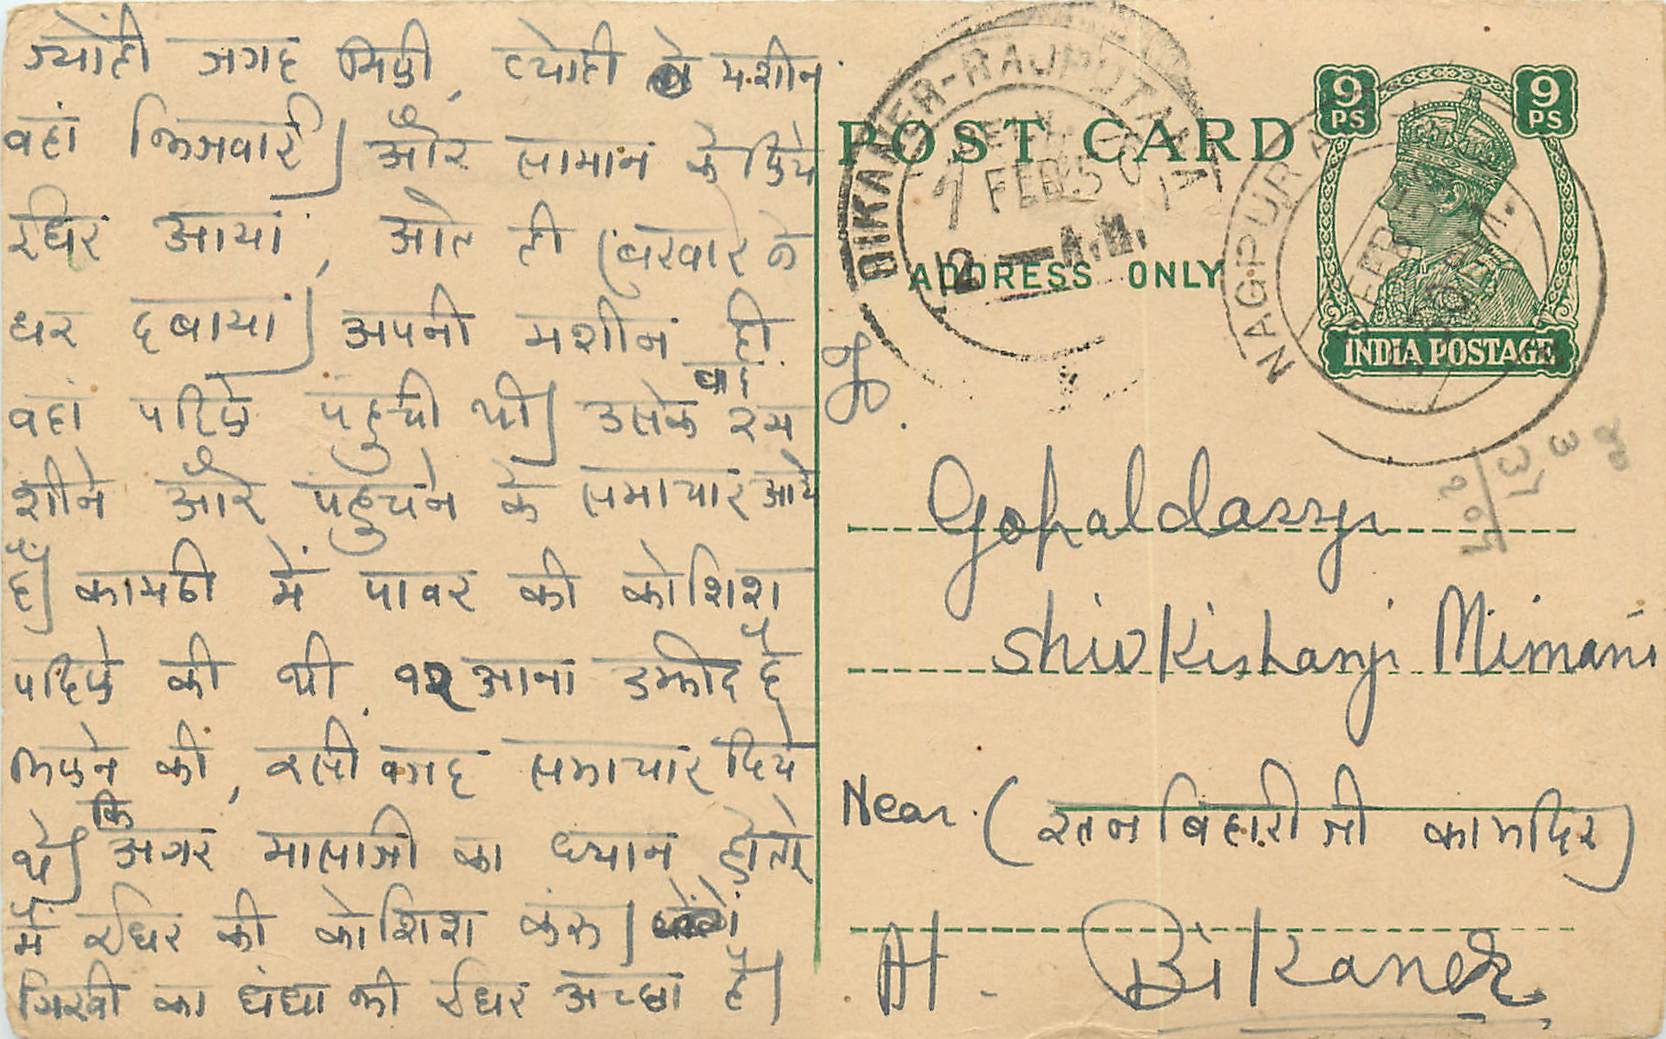 ज्योंही जगह मिली, त्योही मशीन
वहां भिजवाई। और सामान के लिये
ईधर आया, आते ही
घर दबाया। अपनी मशीनं ही
वहां पहिले पंहुची थी। उसके वाद रम
शीने और पंहुचने के समाचार आये
है। कामठी में पावर की कोशिश
पहिले की थी १२ आना उम्मीद है
मिलने की, ईसी तरह समाचार दिये
थे। कि अगर मासाजी का ध्यान होतो
में ईधर की कोशिश करू।
गिरवी का धंधा भी ईधर अच्छा है।
POST CARD
ADDRESS ONLY
9 PS 9 PS
INDIA POSTAGE
BIKANER-RAJPUTANA
7 FEB 50
12 A.M.
NAGPUR
FEB 50
To.
Gopaldasji
Shiv Kishanji Mimani
Near. (रतन बिहारी जी का मंदिर)
At. Bikaner.